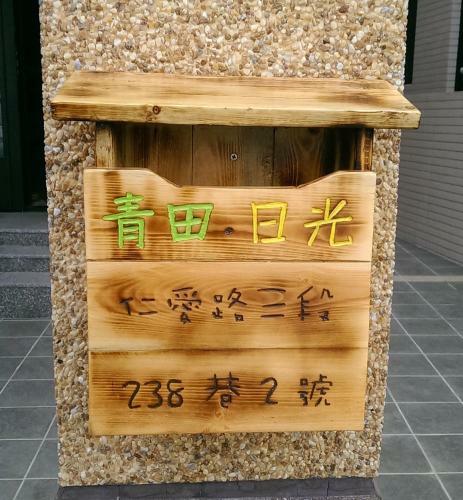 青田 日光
仁愛路三段
238巷2號